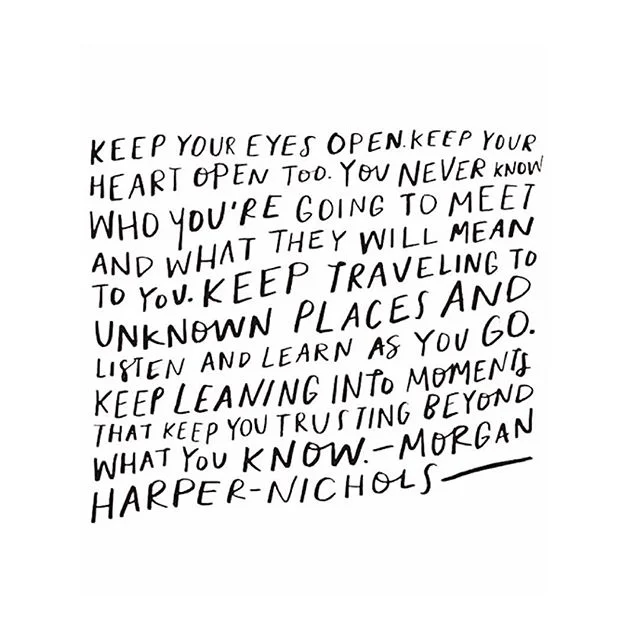 KEEP YOUR EYES OPEN. KEEP YOUR
HEART OPEN TOO. YOU NEVER KNOW
WHO YOU'RE GOING TO MEET
AND WHAT THEY WILL MEAN
TO YOU. KEEP TRAVELING TO
UNKNOWN PLACES AND
LISTEN AND LEARN AS YOU GO.
KEEP LEANING INTO MOMENTS
THAT KEEP YOU TRUSTING BEYOND
WHAT YOU KNOW. – MORGAN
HARPER-NICHOLS